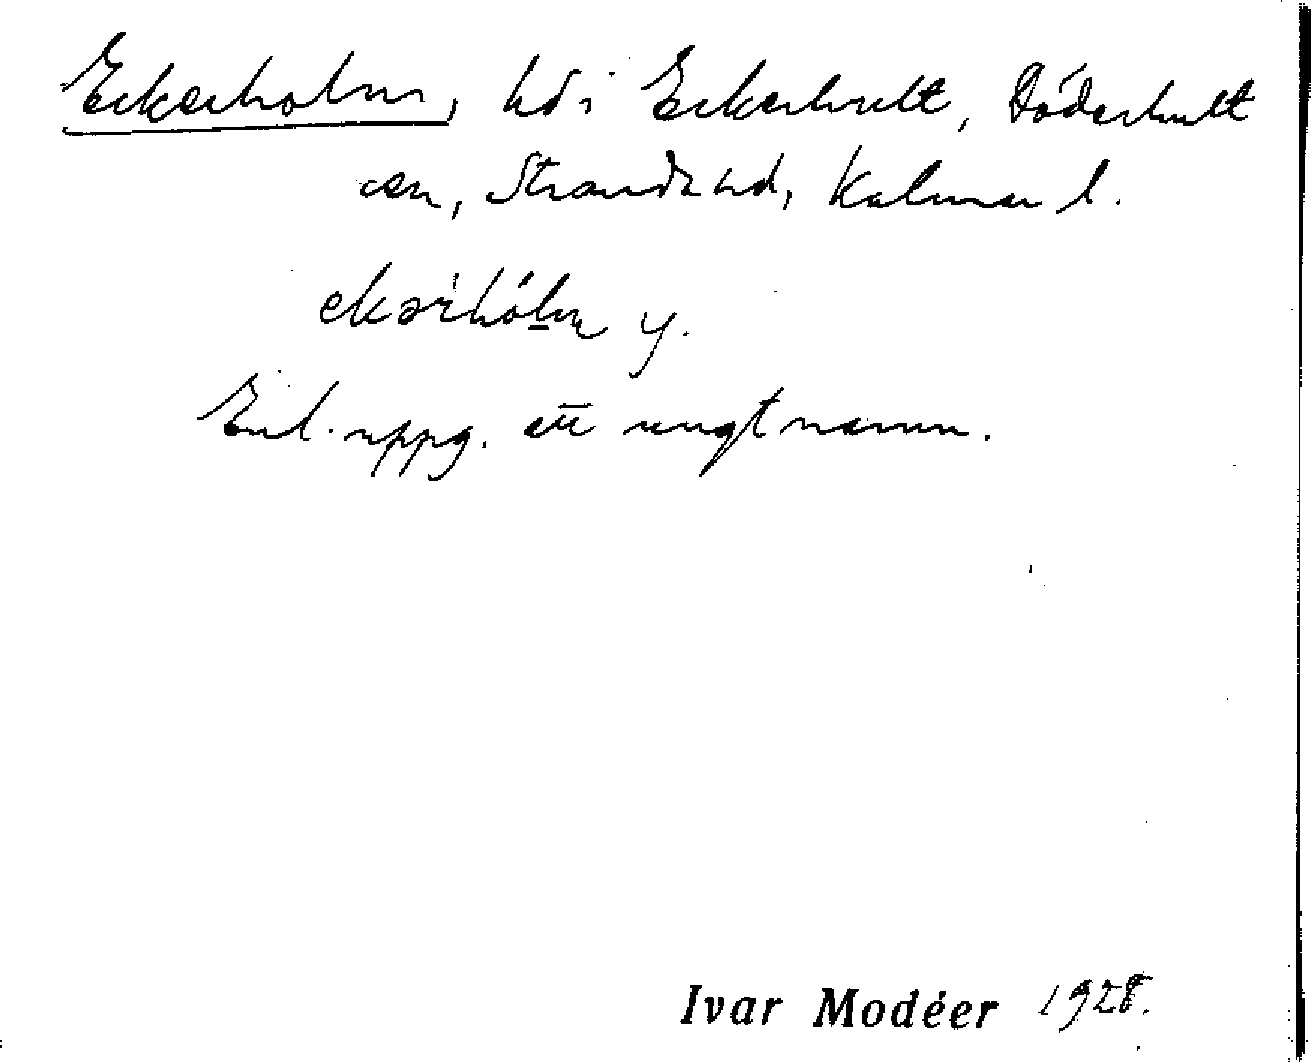 Eckerholm, hd i Eckerhult, Döderhult
sn, Stranda hd, Kalmar l.
ekərhólm y.
Enl. uppg. ett ungt namn.
Ivar Modéer 1928.